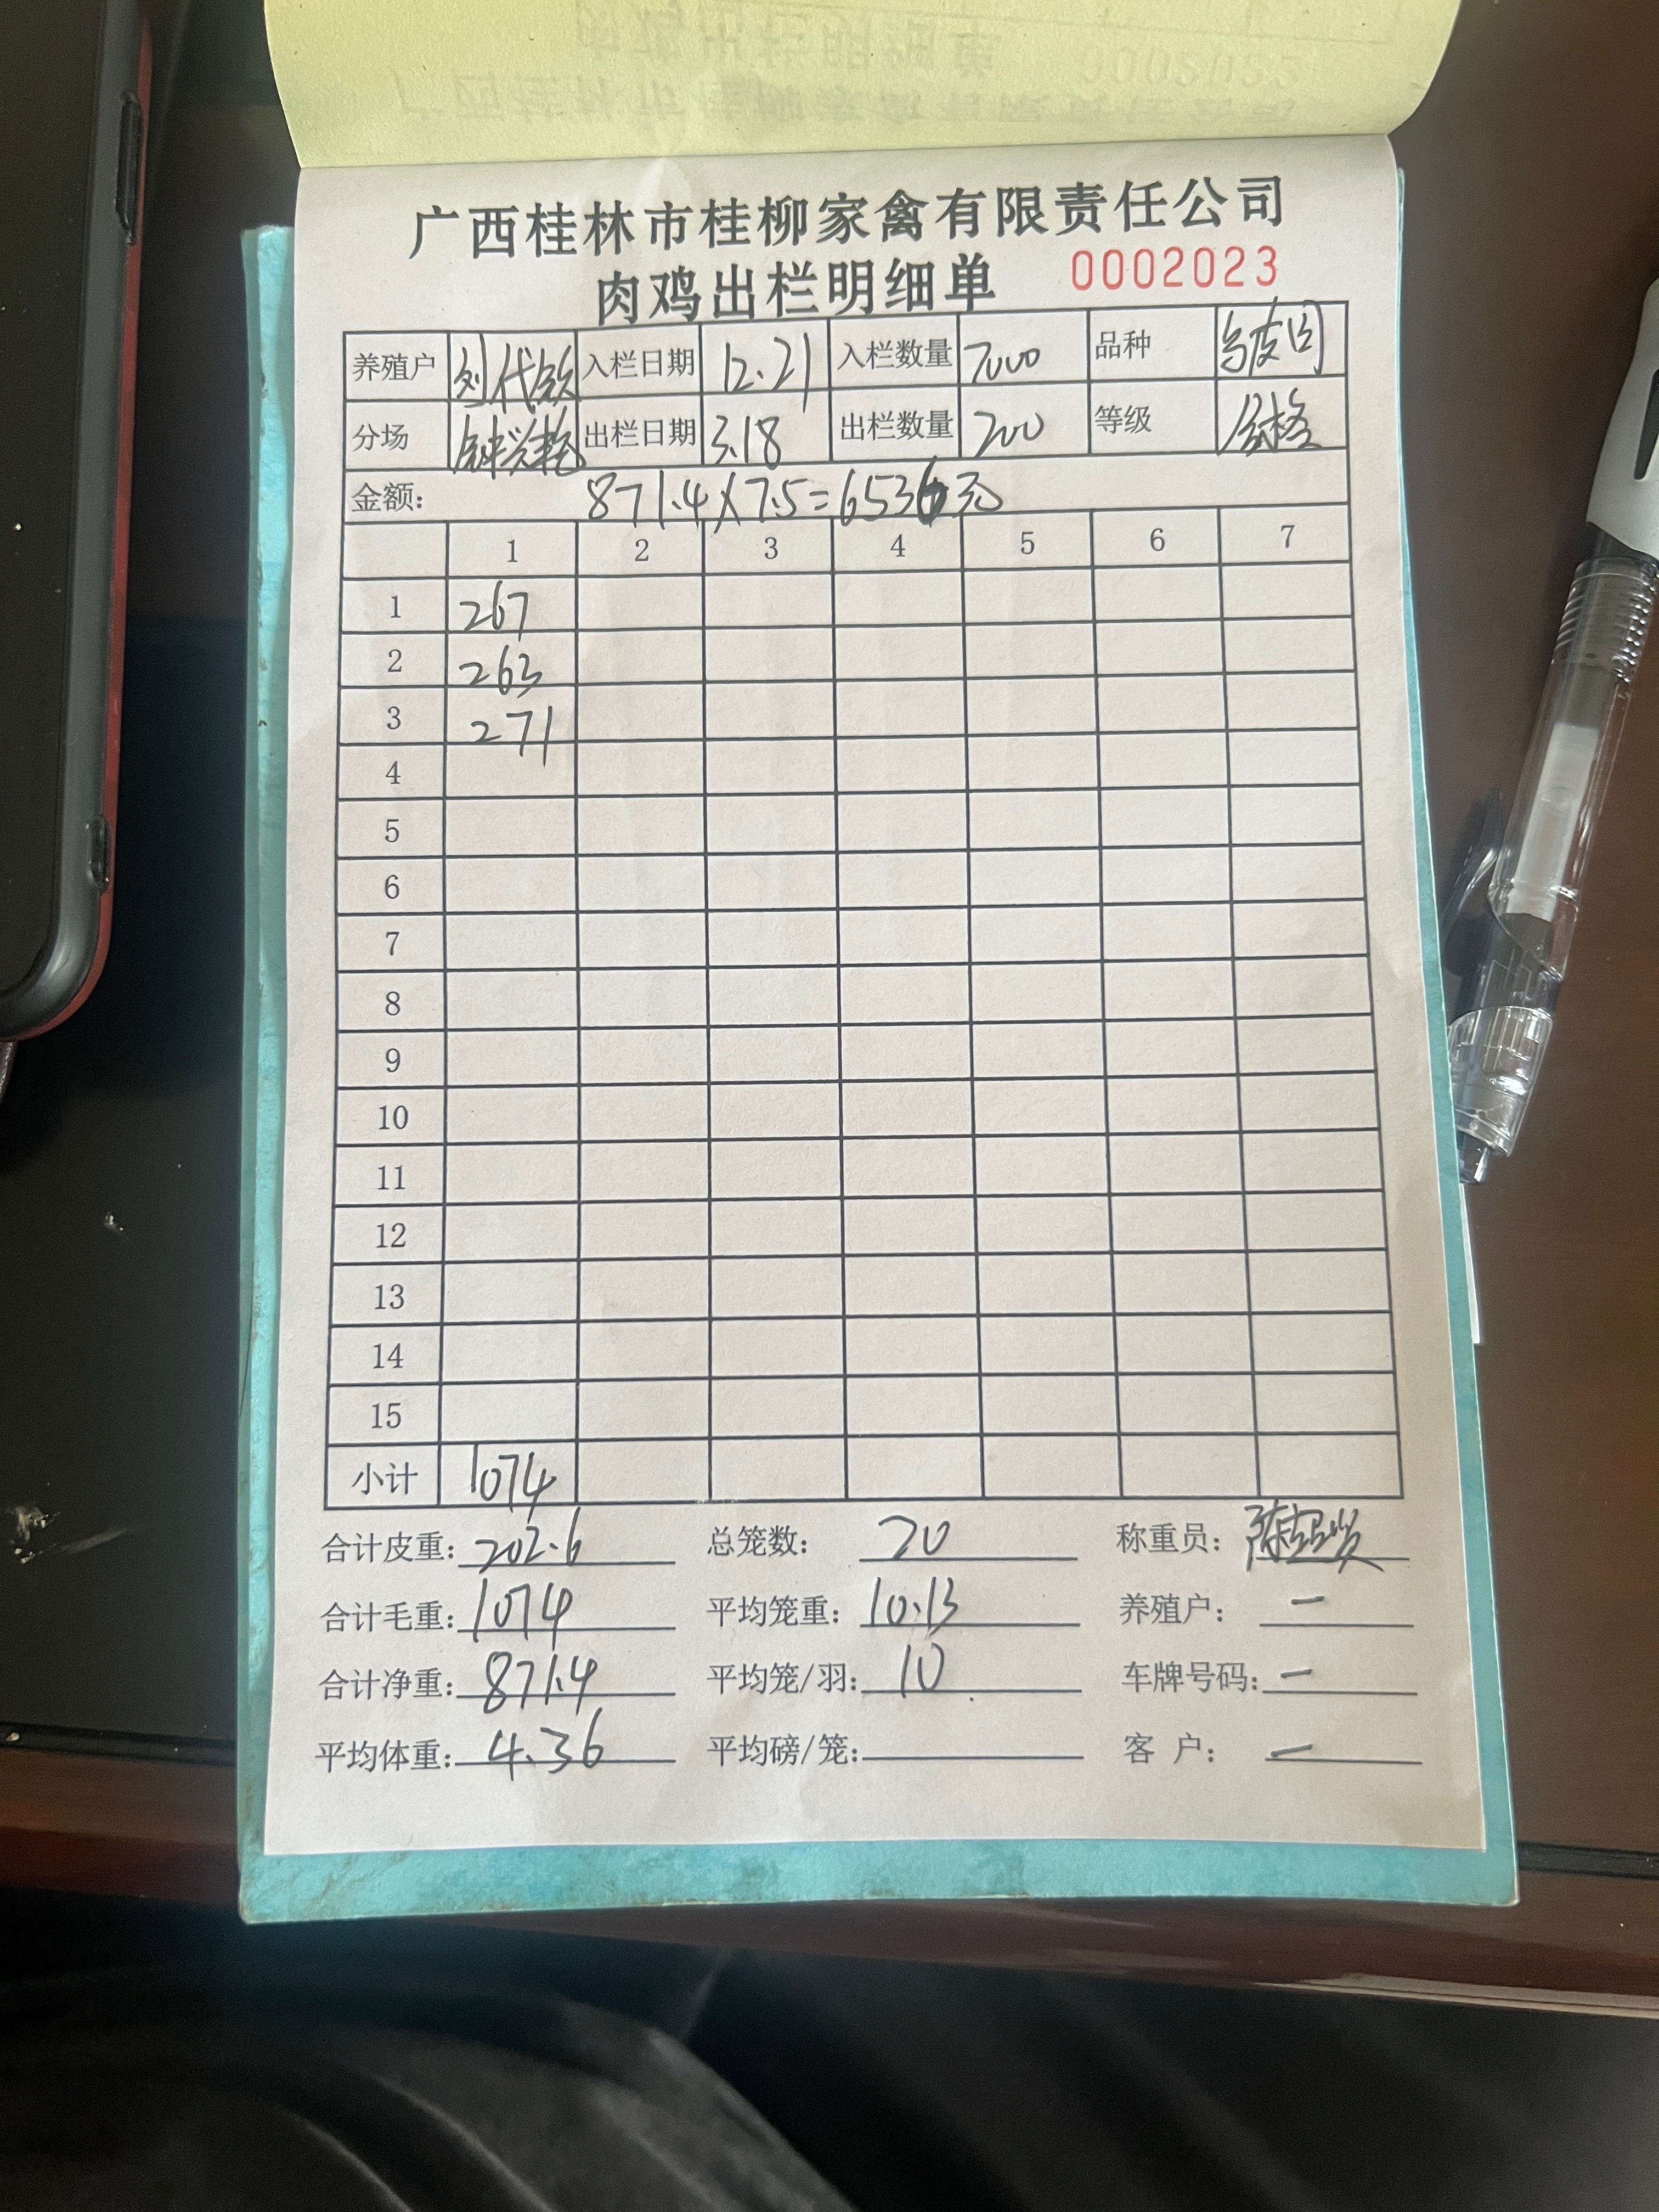 广西桂林市桂柳家禽有限责任公司
肉鸡出栏明细单 0002023
养殖户 刘代钦 入栏日期 12.21 入栏数量 7000 品种
分场 钟兴艳 出栏日期 3.18 出栏数量 200 等级 合格
金额: 871.4×7.5=6536元
1 2 3 4 5 6 7
1 267
2 263
3 271
4
5
6
7
8
9
10
11
12
13
14
15
小计 1074
合计皮重: 202.6 总笼数: 20 称重员:
合计毛重: 1074 平均笼重: 10.13 养殖户: 一
合计净重: 871.4 平均笼/羽: 10 车牌号码: 一
平均体重: 4.36 平均磅/笼: 客 户: 一